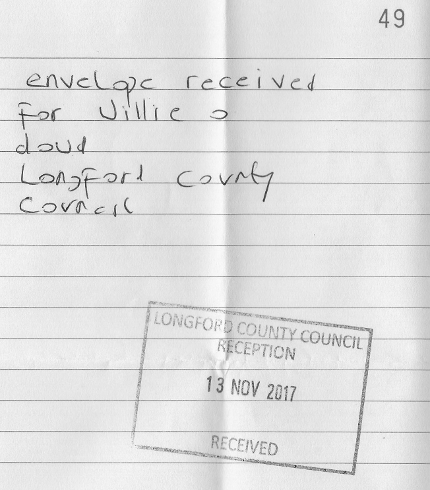 49
envelope received
for Willie o
doud
Longford County
Council
LONGFORD COUNTY COUNCIL
RECEPTION
13 NOV 2017
RECEIVED